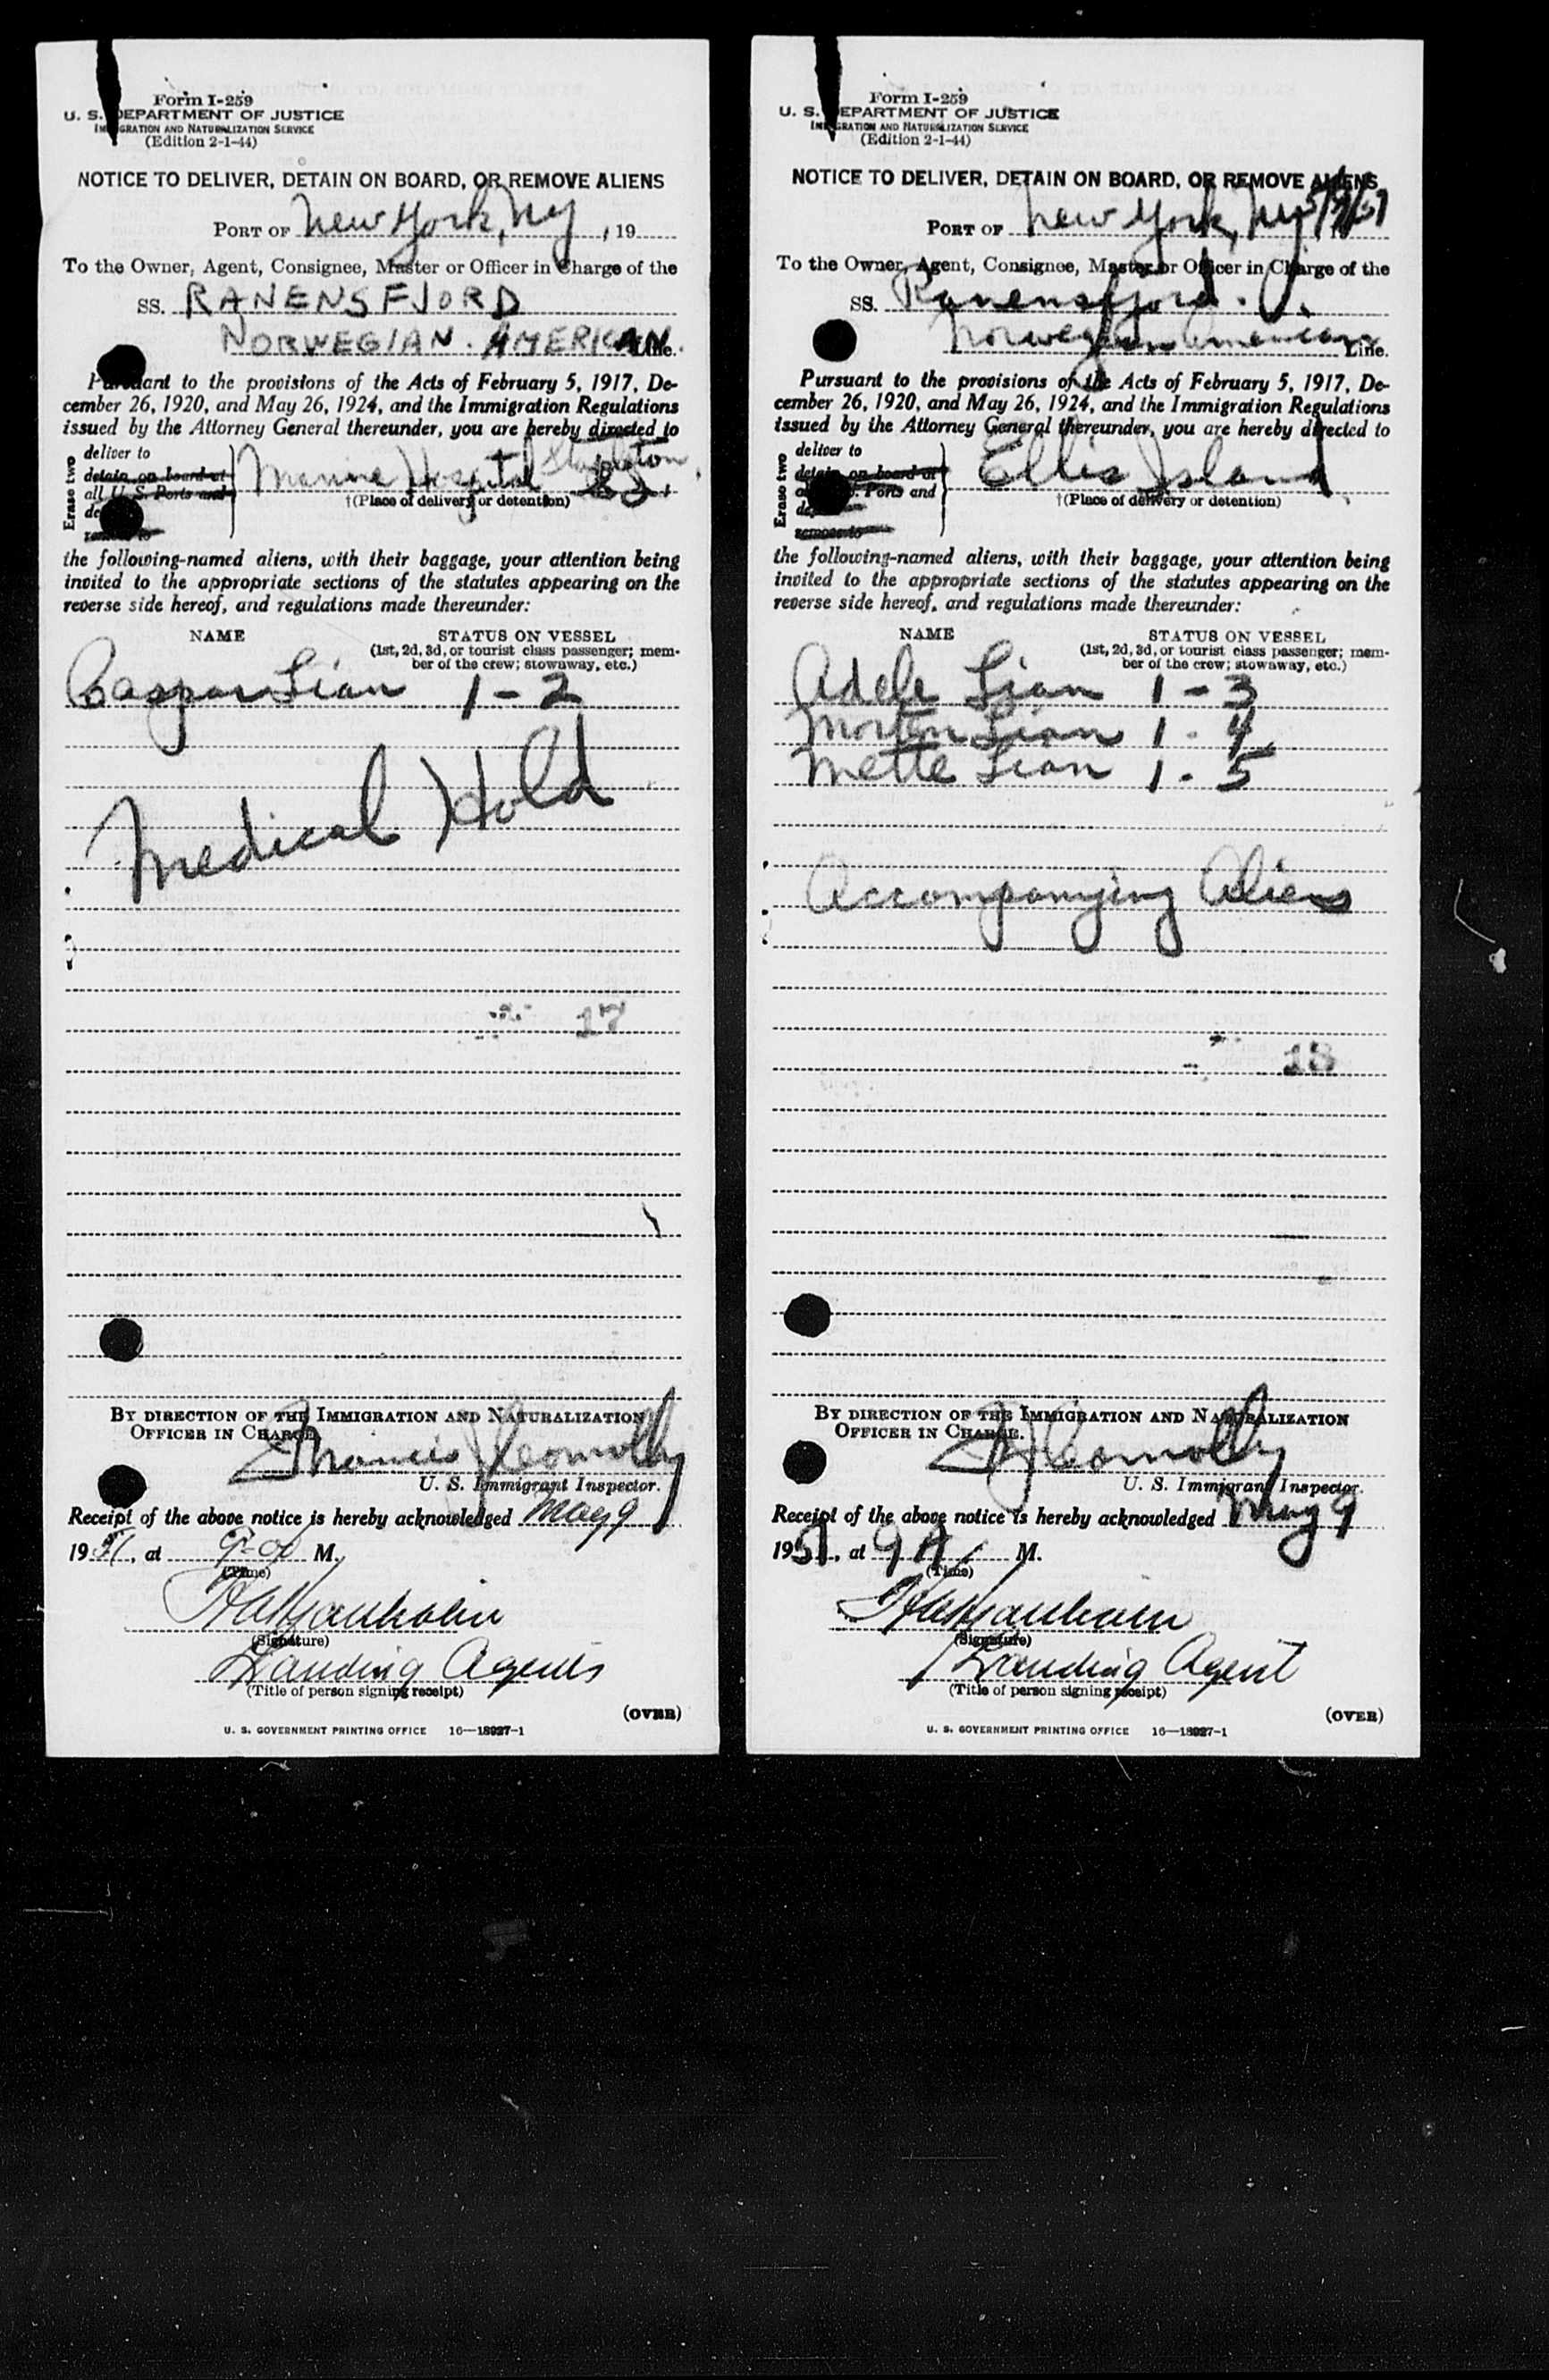 Form I-259
U. S. DEPARTMENT OF JUSTICE
IMMIGRATION AND NATURALIZATION SERVICE
(Edition 2-1-44)
NOTICE TO DELIVER, DETAIN ON BOARD, OR REMOVE ALIENS
PORT OF New York, NY, 19
To the Owner, Agent, Consignee, Master or Officer in Charge of the
SS. RANENSFJORD
NORWEGIAN. AMERICAN Line.
Pursuant to the provisions of the Acts of February 5, 1917, De-
cember 26, 1920, and May 26, 1924, and the Immigration Regulations
issued by the Attorney General thereunder, you are hereby directed to
Erase two
deliver to
detain on board at
all U. S. Ports and
de
remove to
Marine Hospital Stapleton
†(Place of delivery or detention)
the following-named aliens, with their baggage, your attention being
invited to the appropriate sections of the statutes appearing on the
reverse side hereof, and regulations made thereunder:
NAME STATUS ON VESSEL
(1st, 2d, 3d, or tourist class passenger; mem-
ber of the crew; stowaway, etc.)
Caspar Lian 1 - 2
Medical Hold
17
BY DIRECTION OF THE IMMIGRATION AND NATURALIZATION
OFFICER IN CHARGE.
Francis J Connolly
U. S. Immigrant Inspector.
Receipt of the above notice is hereby acknowledged May 9
1951, at 9-00 M.
(Time)
(Signature)
Landing Agents
(Title of person signing receipt)
(OVER)
U. S. GOVERNMENT PRINTING OFFICE 16—18927-1
Form I-259
U. S. DEPARTMENT OF JUSTICE
IMMIGRATION AND NATURALIZATION SERVICE
(Edition 2-1-44)
NOTICE TO DELIVER, DETAIN ON BOARD, OR REMOVE ALIENS
PORT OF New York, NY 5/9/51
To the Owner, Agent, Consignee, Master or Officer in Charge of the
SS. Ranensfjord.
Norwegian American Line.
Pursuant to the provisions of the Acts of February 5, 1917, De-
cember 26, 1920, and May 26, 1924, and the Immigration Regulations
issued by the Attorney General thereunder, you are hereby directed to
Erase two
deliver to
detain on board at
all U. S. Ports and
de
remove to
Ellis Island.
†(Place of delivery or detention)
the following-named aliens, with their baggage, your attention being
invited to the appropriate sections of the statutes appearing on the
reverse side hereof, and regulations made thereunder:
NAME STATUS ON VESSEL
(1st, 2d, 3d, or tourist class passenger; mem-
ber of the crew; stowaway, etc.)
Adele Lian 1 - 3
Morten Lian 1 - 4
Mette Lian 1 - 5
Accompanying Aliens
18
BY DIRECTION OF THE IMMIGRATION AND NATURALIZATION
OFFICER IN CHARGE.
F J Connolly
U. S. Immigrant Inspector.
Receipt of the above notice is hereby acknowledged May 9
1951, at 9 A M.
(Time)
(Signature)
Landing Agent
(Title of person signing receipt)
(OVER)
U. S. GOVERNMENT PRINTING OFFICE 16—18927-1